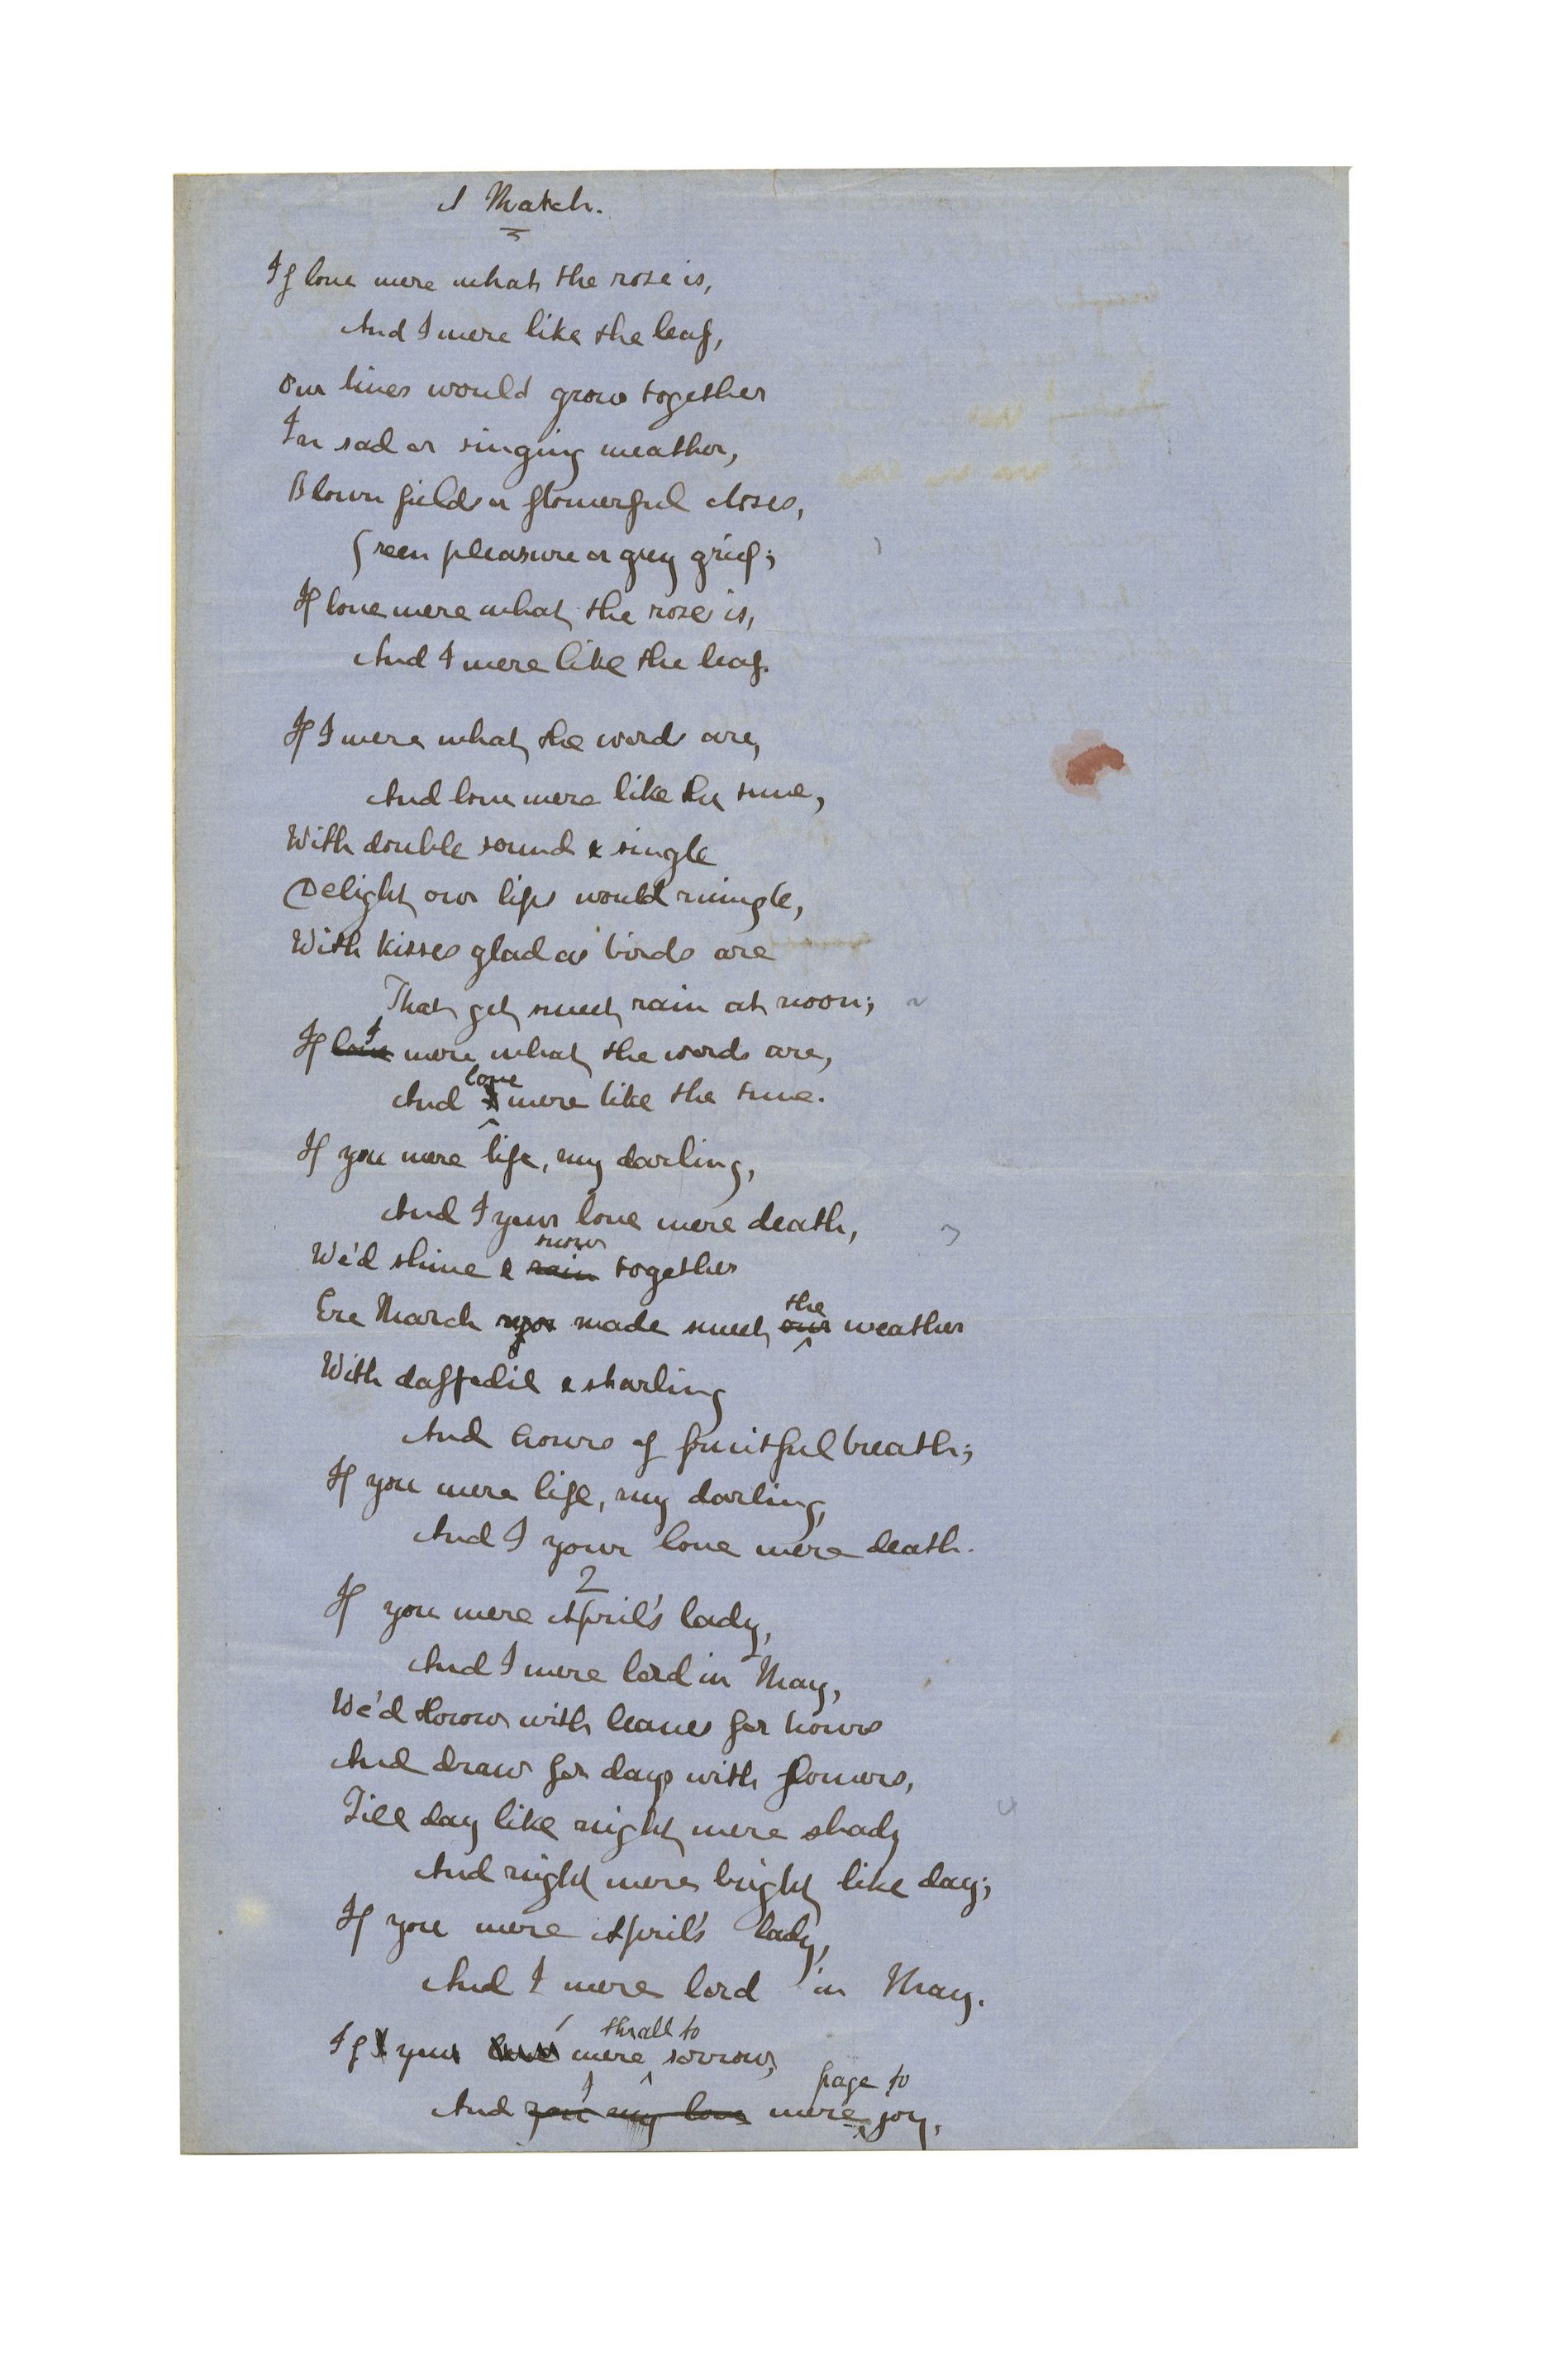 A Match.
If love were what the rose is,
And I were like the leaf,
Our lives would grow together
In sad or singing weather,
Blown fields or flowerful closes,
Green pleasure or grey grief;
If love were what the rose is,
And I were like the leaf.
If I were what the words are,
And love were like the tune,
With double sound & single
Delight our lips would mingle,
With kisses glad as birds are
That get sweet rain at noon;
If love I were what the words are,
And I love were like the tune.
If you were life, my darling,
And I your love were death,
We'd shine & rain snow together
Ere March made sweet our the weather
With daffodil & starling
And hours of fruitful breath;
If you were life, my darling,
And I your love were death.
2
If you were April's lady,
And I were lord in May,
We'd throw with leaves for hours
And draw for days with flowers,
Till day like night were shady
And night were bright like day;
If you were April's lady,
And I were lord in May.
thrall to
If I your love were sorrow,
page to
And you my love I were joy,